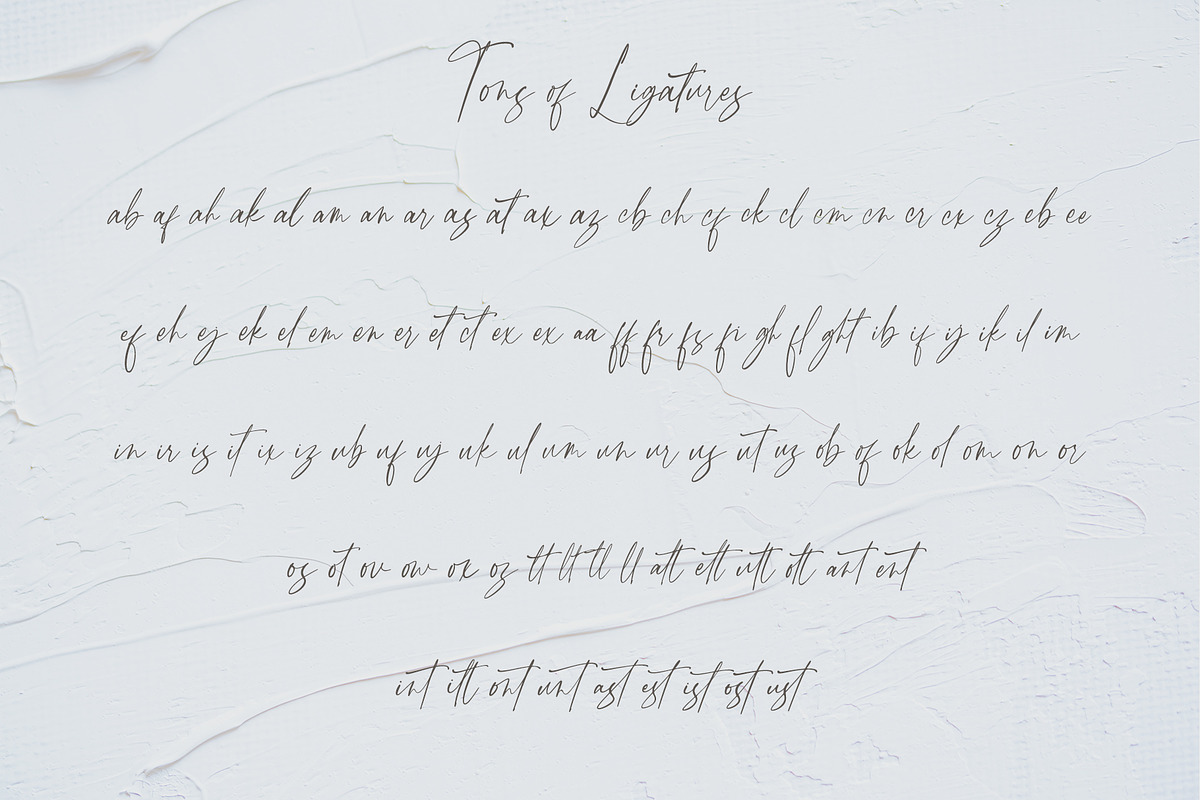 Tons of Ligatures
ab af ah ak al am an ar as at ax az cb ch cf ck cl cm cn cr cx cz eb ee
ef eh ej ek el em en er et ct ex ex aa ff fr fs fi gh fl ght ib if ij ik il im
in ir is it ix iz ub uf uj uk ul um un ur us ut uz ob of ok ol om on or
os ot ov ow ox oz tt lt tl ll att ett utt ott ant ent
int itt ont unt ast est ist ost ust